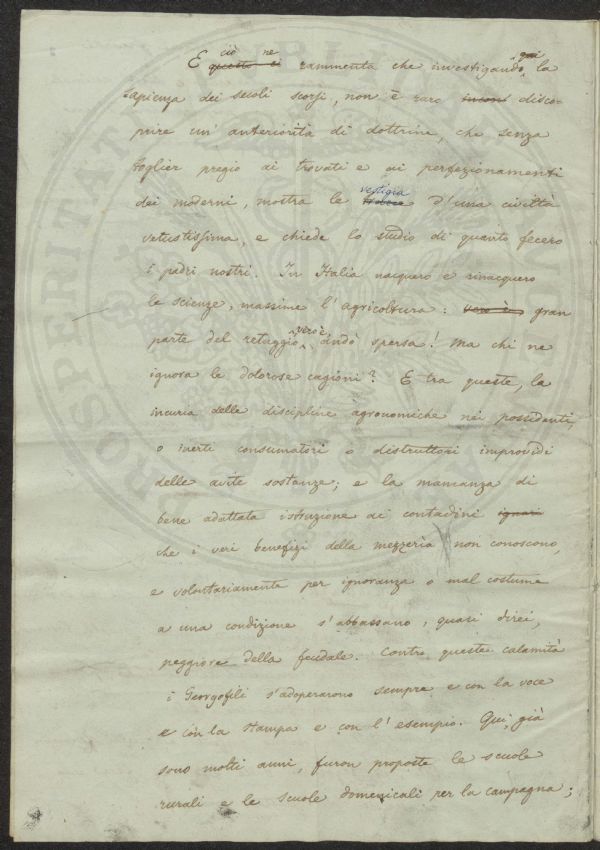 E ciò ne ~~questo ci~~ rammenta che investigando qui la
sapienza dei secoli scorsi, non è raro ~~incont~~ disco-
prire un' anteriorità di dottrine, che senza
toglier pregio ai trovati e ai perfezionamenti
dei moderni, mostra le vestigia d'una civiltà
vetustissima, e chiede lo studio di quanto fecero
i padri nostri. In Italia nacquero e rinacquero
le scienze, massime l'agricoltura: ~~vero è~~ gran
parte del retaggio, vero è, andò spersa! Ma chi ne
ignora le dolorose cagioni? E tra queste, la
incuria delle discipline agronomiche nei possidenti,
o inerti consumatori o distruttori improvidi
delle avite sostanze; e la mancanza di
bene adattata istruzione ai contadini ~~ignari~~
che i veri benefizi della mezzeria non conoscono,
e volontariamente per ignoranza o mal costume
a una condizione s'abbassano, quasi direi,
peggiore della feudale. Contro queste calamità
i Georgofili s'adoperarono sempre e con la voce
e con la stampa e con l'esempio. Qui, già
sono molti anni, furon proposte le scuole
rurali e le scuole domenicali per la campagna;
PROSPERITATI